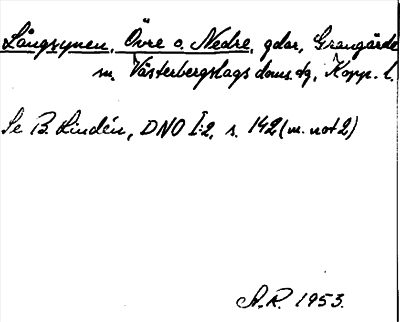 Långsynen, Övre o. Nedre, gdar, Grangärde
sn, Västerbergslags doms.dg, Kopp. l.
Se B. Lindén, DNO I:2, s. 142 (m. not 2)
A.R. 1953.